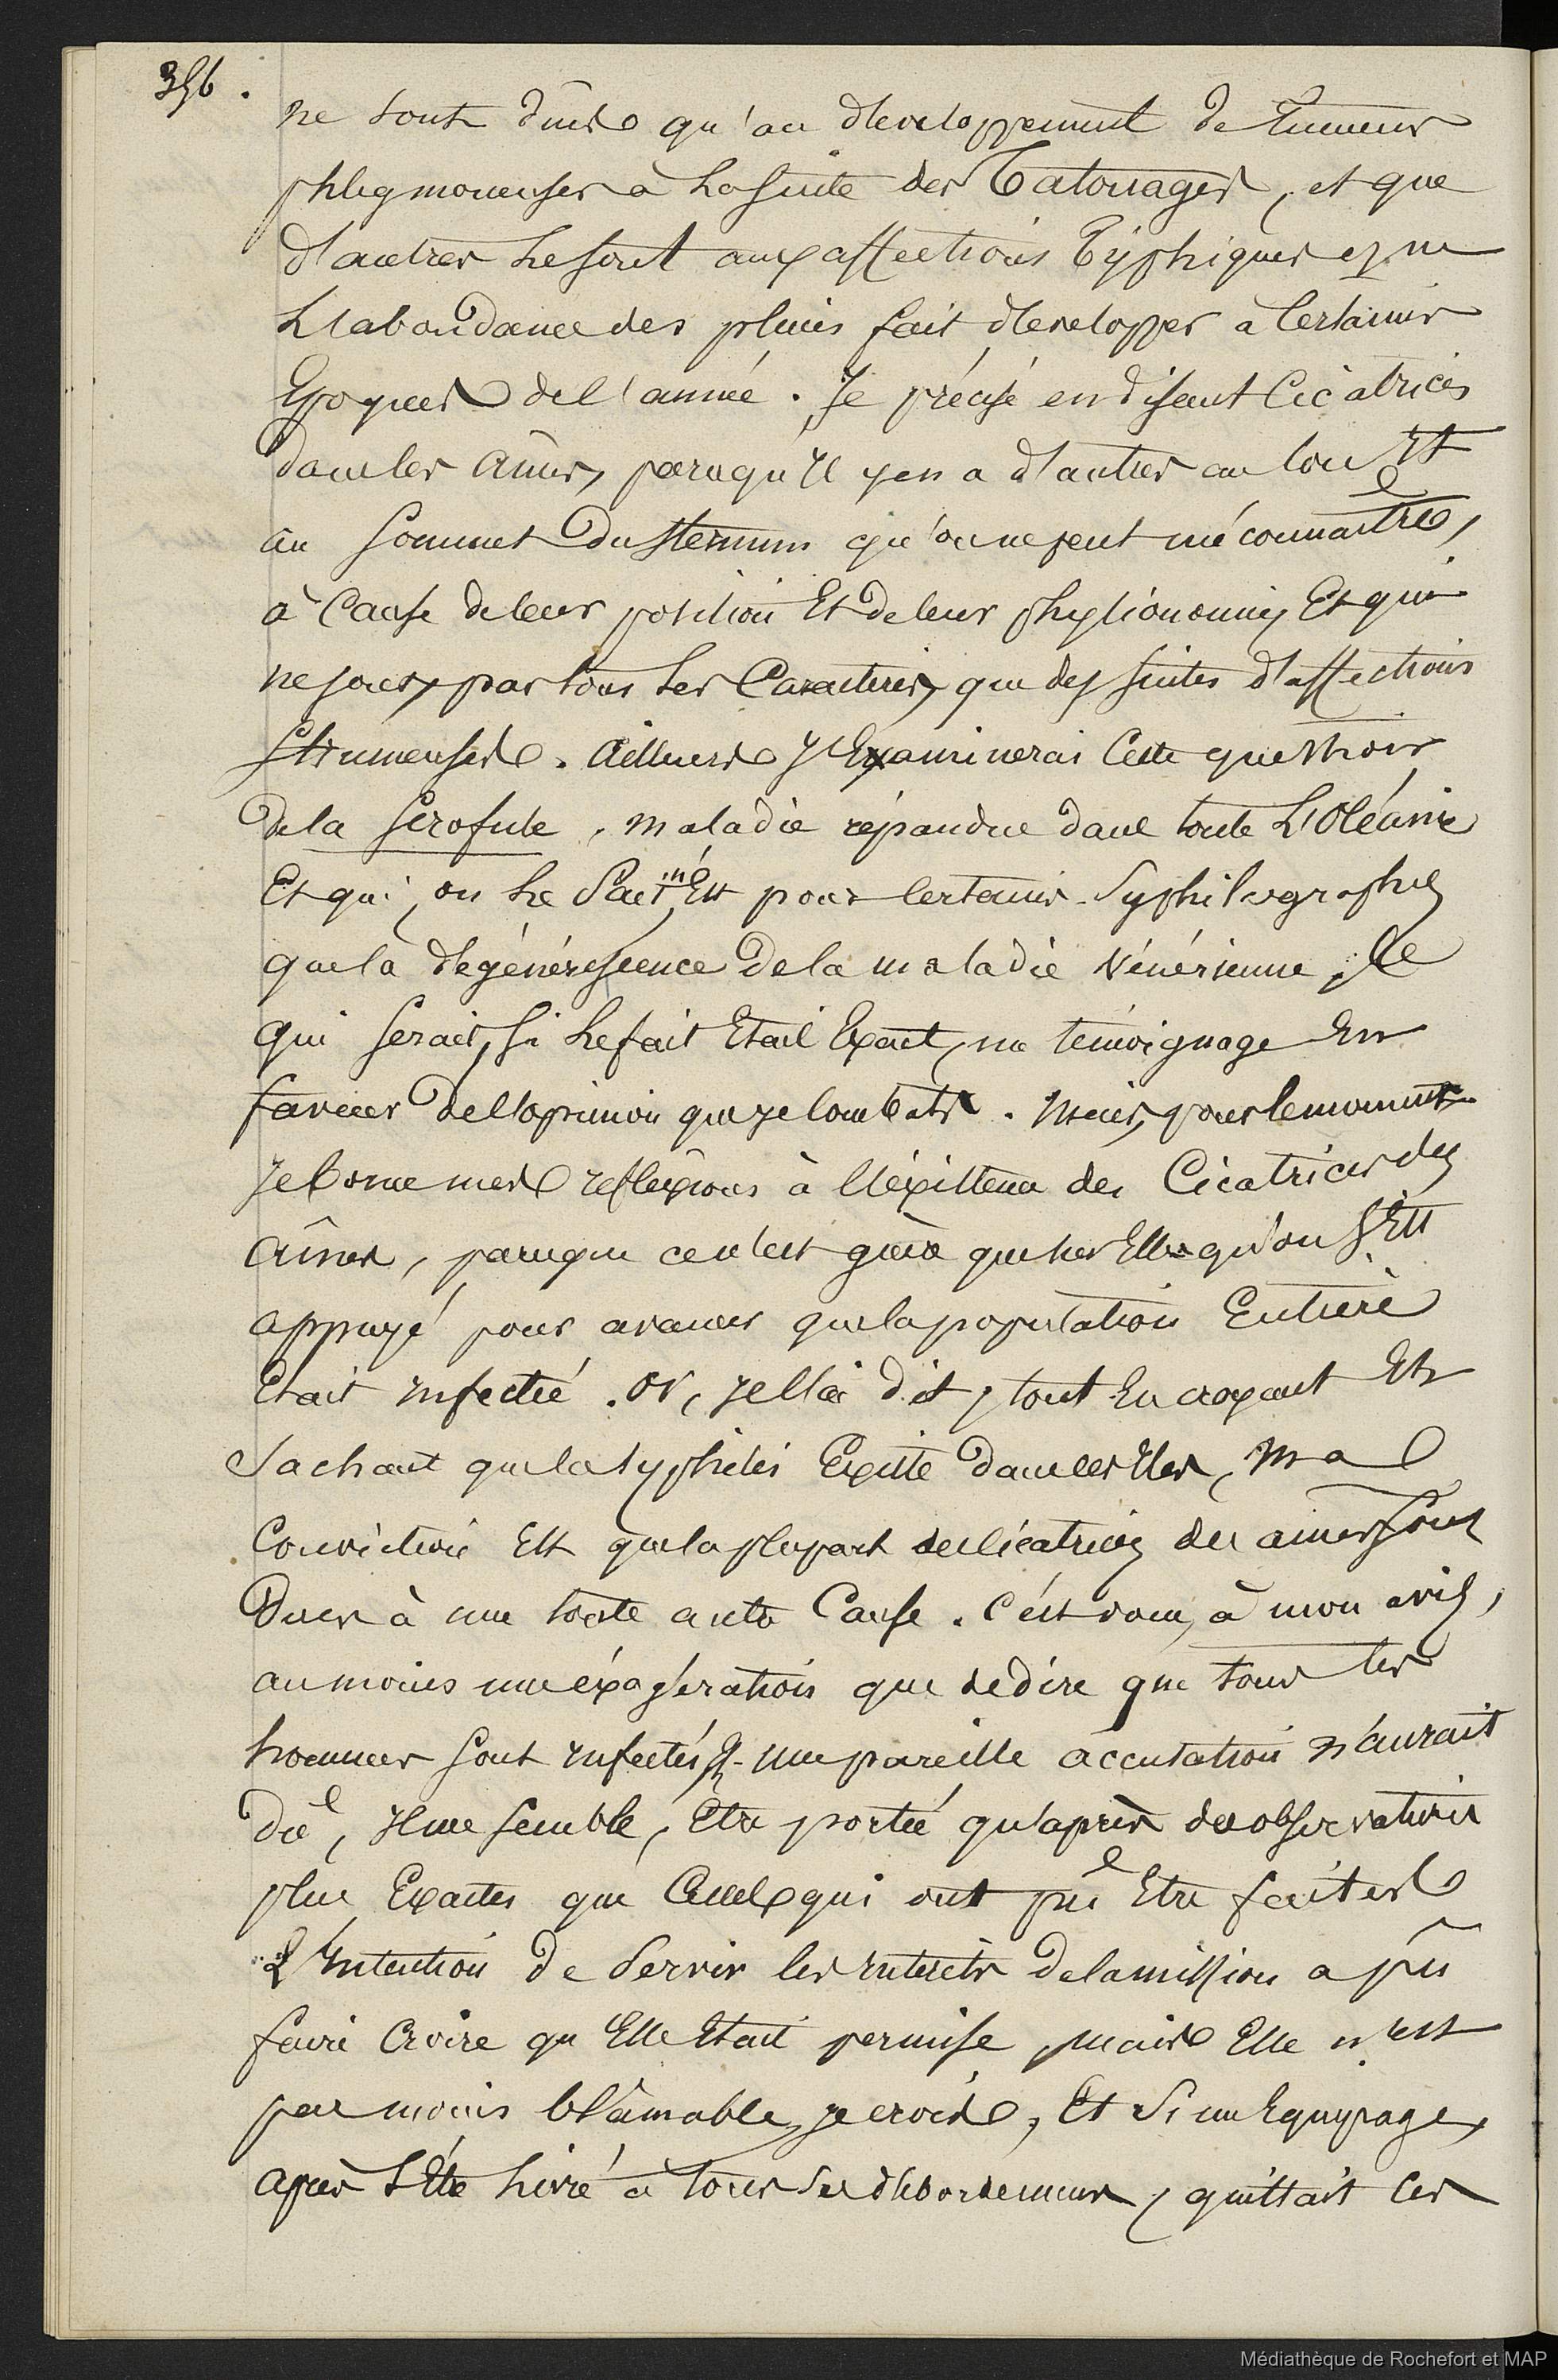 356.
ne sont dues qu'au développement de tumeurs
phlegmoneuses à la suite des Tatouages, et que
d'autres le sont aux affections typhiques que
l'abondance des pluies fait développer à certaines
Époques de l'année. Je précise en disant Cicatrices
dans les aînes, parcequ'Il y en a d'autres au cou Et
au sommet du sternum qu'on ne peut méconnaître,
à cause de leur position Et de leur physionomie, Et qui
ne sont, par tous les caractères, que des suites d'affections
strumeuses. Ailleurs J'Examinerai Cette question
de la scrofule, maladie répandue dans toute L'Océanie
Et qui, on le sait, n'Est pour certains Syphilographes
que la dégénérescence de la maladie Vénérienne, Ce
qui serait, si le fait Etait Exact, un témoignage En
faveur de l'opinion que je combats. Mais, pour le moment
Je borne mes réflexions à l'existence des Cicatrices des
aînes, parceque ce n'est guère que sur Elles qu'on s'Est
appuyé pour avancer que la population Entière
Etait Infectée. Or, je l'ai dit, tout En croyant Et
sachant que la syphilis Existe dans ces Iles, ma
Conviction Est que la plupart des cicatrices des aines sont
dues à une toute autre Cause. C'est donc, à mon avis,
au moins une éxagération que de dire que tous les
hommes sont Infectés & une pareille accusation n'aurait
dû, Il me semble, Etre portée qu'après des observations
plus Exactes que Celles qui ont pu Etre faites
L'Intention de servir les Intérêts de la mission a pu
faire Croire qu'Elle Etait permise, mais Elle n'est
pas moins blâmable, je crois, Et si un Equipage,
après s'Etre livré à tous ses débordements, quittait les
Médiathèque de Rochefort et MAP